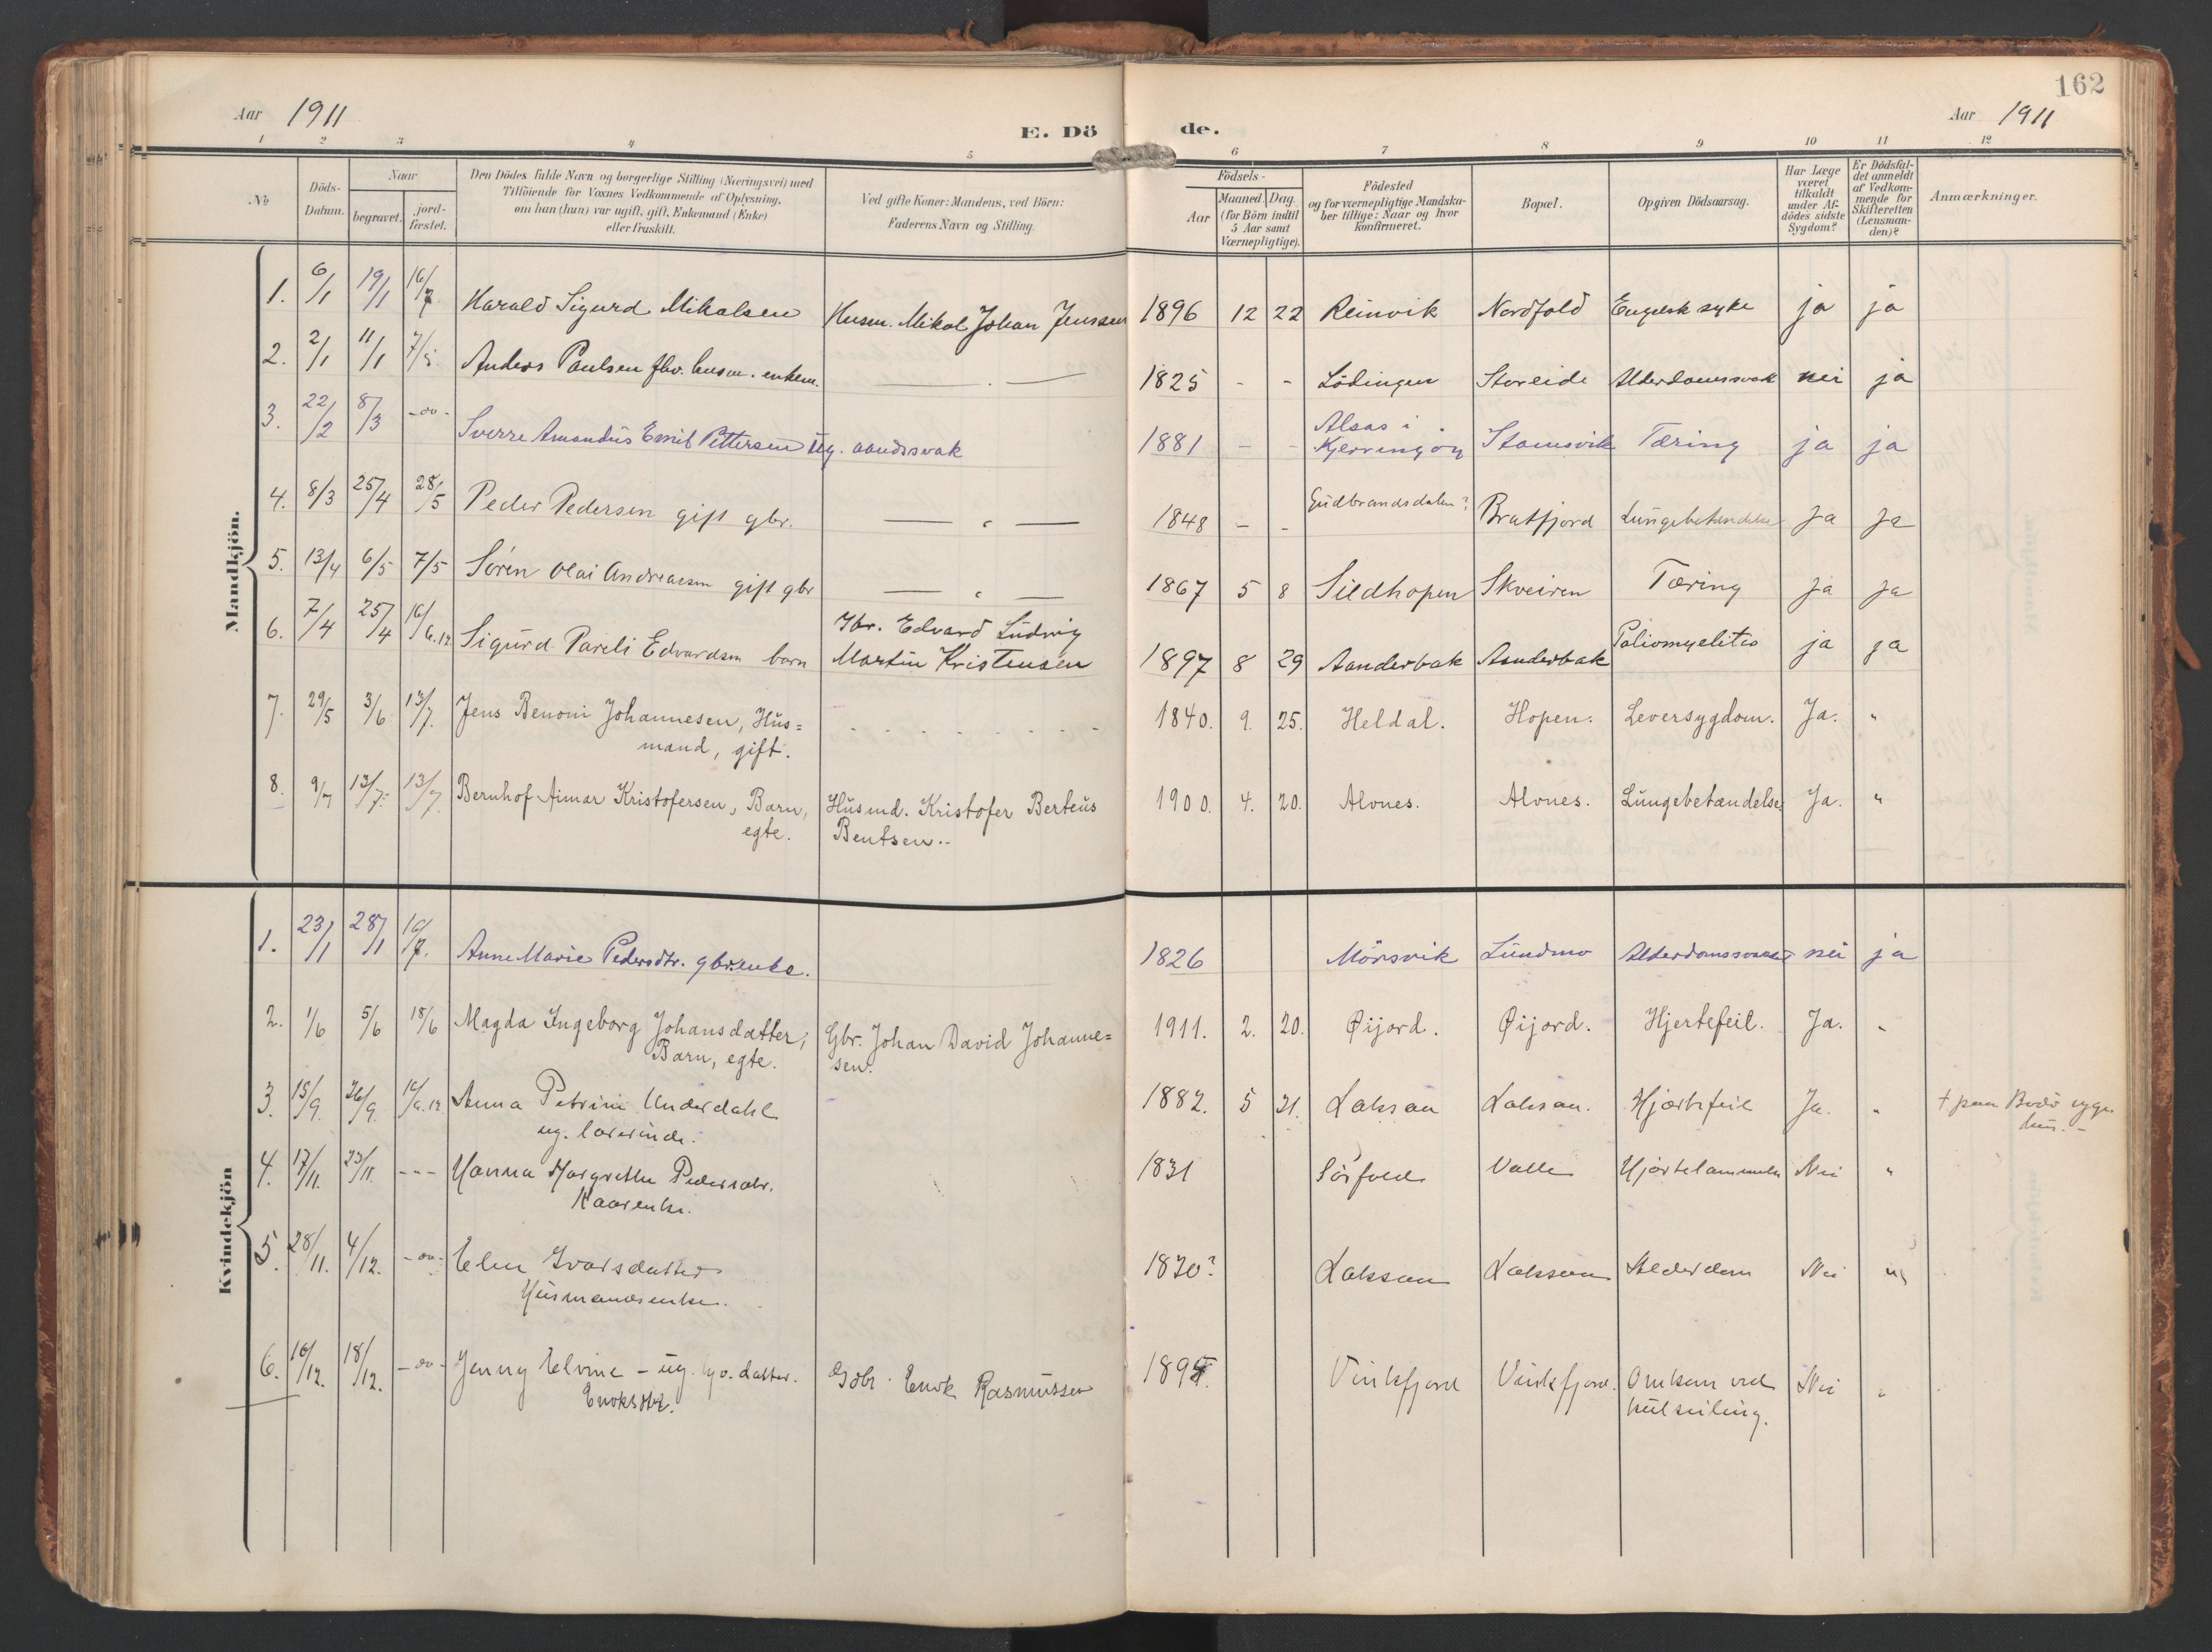 162
Aar 1911
E. Dö de.
Aar 1911
1 2 3 4 5 6 7 8 9 10 11 12
№
Döds-
Datum.
Naar
begravet.
jord-
fæstet.
Den Dödes fulde Navn og borgerlige Stilling (Næringsvei) med
Tilföiende for Voxnes Vedkommende af Oplysning,
om han (hun) var ugift, gift, Enkemand (Enke)
eller fraskilt.
Ved gifte Koner: Mandens, ved Börn:
Faderens Navn og Stilling.
Födsels-
Aar
Maaned. Dag.
(for Börn indtil
5 Aar samt
Værnepligtige).
Födested
og for værnepligtige Mandska-
ber tillige: Naar og hvor
konfirmeret.
Bopæl.
Opgiven Dödsaarsag.
Har Læge
været
tilkaldt
under Af-
dödes sidste
Sygdom?
Er Dödsfal-
det anmeldt
af Vedkom-
mende for
Skifteretten
(Lensman-
den)?
Anmærkninger.
Mandkjön.
1. 6/1 19/1 16/7. Harald Sigurd Mikalsen Husm. Mikal Johan Jenssen 1896 12 22 Reinvik Nordfold Engelsk syke ja ja
2. 2/1 11/1 7/5. Anders Paulsen fhv. husm. enkem. — . — 1825 - - Lödingen Storeide Alderdomssvak nei ja
3. 22/2 8/3 -oo- Sverre Amandus Emil Pettersen ug. aandssvak 1881 - - Alsos i
Kjerringöy Stamsvik Tæring ja ja
4. 8/3 25/4 28/5 Peder Pedersen gift gbr. — " — 1848 - - Gudbrandsdalen? Bratfjord Lungebetændelse ja ja
5. 13/4 6/5 7/5 Sören Olai Andreasen gift gbr — " — 1867 5 8 Sildhopen Skveiren Tæring ja ja
6. 7/4 25/4 16/6.12 Sigurd Pareli Edvardsen barn Gbr. Edvard Ludvig
Martin Kristensen 1897 8 29 Aanderbak Aanderbak Poliomyelitis ja ja
7. 29/5 3/6 13/7. Jens Benoni Johannesen, Hus=
mand, gift. - - - - - - - - - 1840. 9. 25. Heldal. Hopen. Leversygdom. Ja. "
8. 9/7 13/7. 13/7. Bernhof Aimar Kristofersen, Barn,
egte. Husmd. Kristofer Berteus
Bentsen.. 1900. 4. 20. Alvnes. Alvnes. Lungebetændelse Ja. "
Kvindekjön
1. 23/1 28/1 16/7. Anne Marie Pedersdtr. gbr.enke. 1826 Mörsvik Lundmo Alderdomssvakhet nei ja
2. 1/6 5/6 18/6 Magda Ingeborg Johansdatter,
Barn, egte. Gbr. Johan David Johanne=
sen. 1911. 2. 20. Øijord. Øijord. Hjertefeil. Ja. "
3. 15/9. 26/9. 16/6.12 Anna Petrine Underdahl
ug. lærerinde. 1882. 5 21. Laksaa Laksaa. Hjærtefeil Ja. " † paa Bodö syge
hus. -
4. 17/11. 23/11. --- Hanna Margrethe Pedersdtr.
Kaarenke. 1831 Sörfold Valle Hjærtelammelse Nei "
5. 28/11. 4/12. -oo- Elen Ivarsdatter
Husmandsenke. 1830? Laksaa Laksaa Alderdom Nei "
6. 10/12. 18/12. -oo- Jenny Elvine - ug. datter.
Enoksdtr. Gbr. Enok Rasmussen 1894. Vinkfjord Vinkfjord. Omkom ved
kulseiling. Nei "